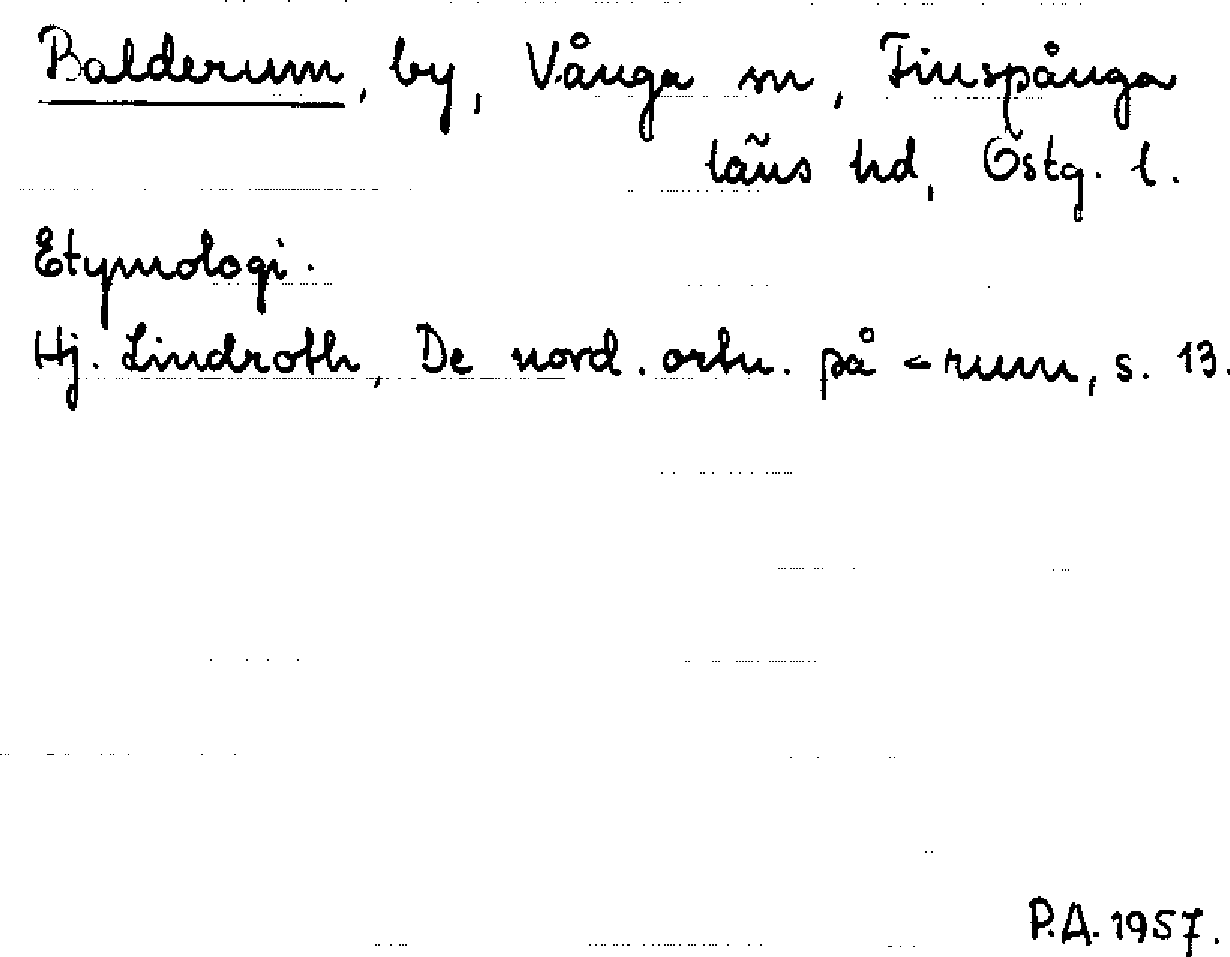 Balderum, by, Vånga sn, Finspånga
läns hd, Östg. l.
Etymologi.
Hj. Lindroth, De nord. ortn. på -rum, s. 13.
P.A. 1957.